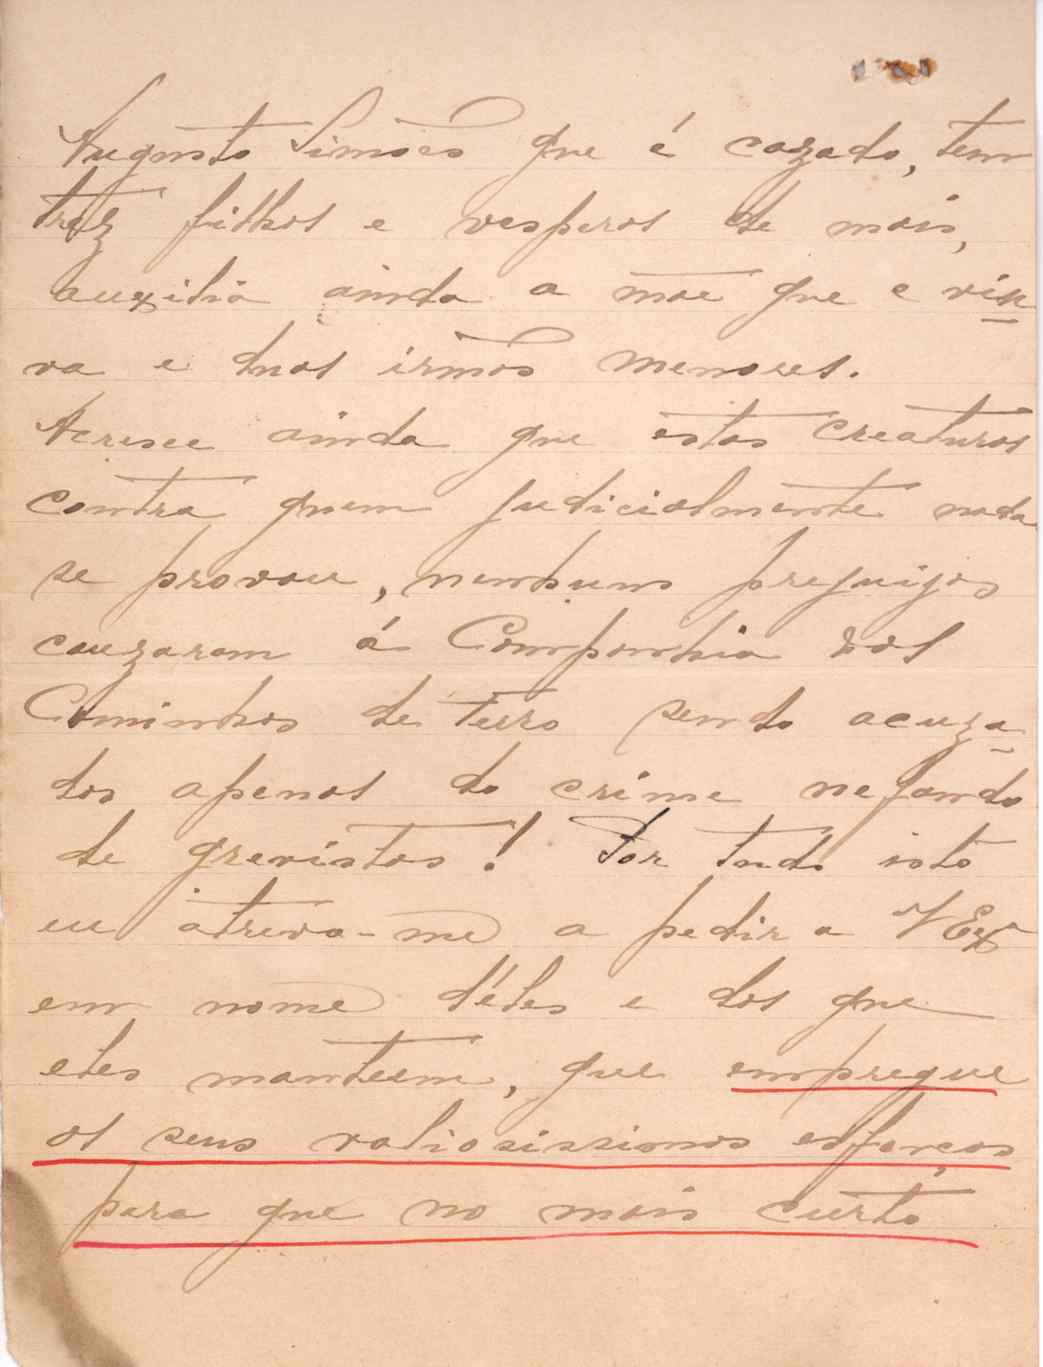 Augusto Simões que é cazado, tem
trez filhos e vesperas de mais,
auxilia ainda a mãe que e viu
va e duas irmãs menores.
Acresce ainda que estas creaturas
contra quem judicialmente nada
se provou, nenhuns prejuijos
cauzaram á Companhia dos
Caminhos de ferro sendo acuza-
dos apenas do crime nefando
de grevistas! Por tudo isto
eu atrevo-me a pedir a VExª
em nome déles e dos que
eles manteem, que empregue
os seus valiosissimos esforços
para que no mais curto